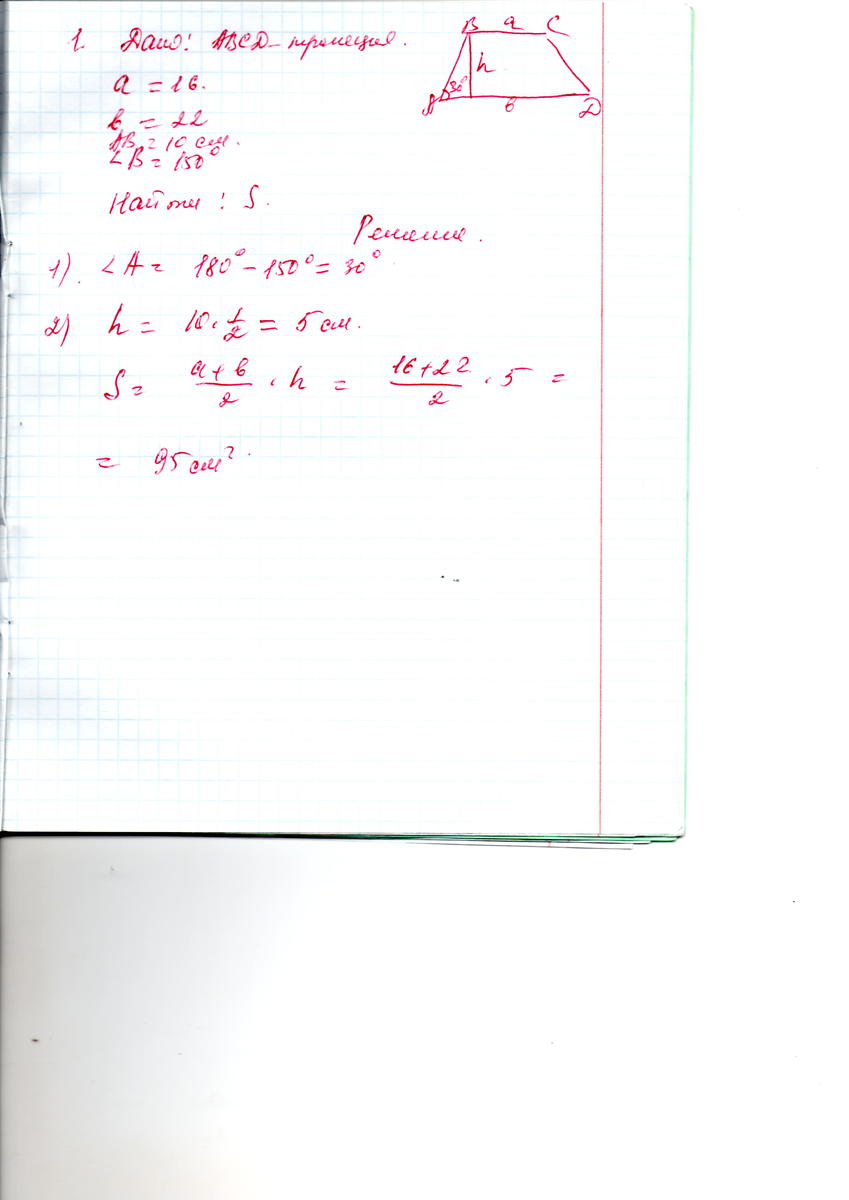 1. Дано: ABCD - трапеция.
a = 16.
b = 22
AB = 10 см.
∠B = 150°
Найти: S.
B a C
h
30°
A b D
Решение.
1). ∠A = 180° - 150° = 30°
2) h = 10 · 1/2 = 5 см.
S = (a + b)/2 · h = (16 + 22)/2 · 5 =
= 95 см².